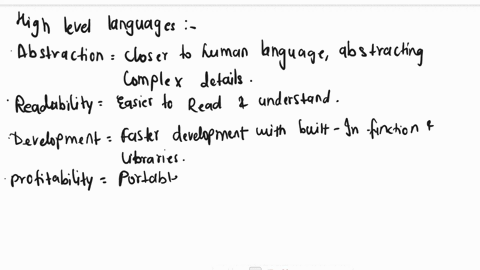 High level languages :-
· Abstraction = Closer to human language, abstracting
Complex details.
· Readability = Easier to Read & understand.
· Development = Faster development with built-In function &
libraries.
· Profitability = Portabl